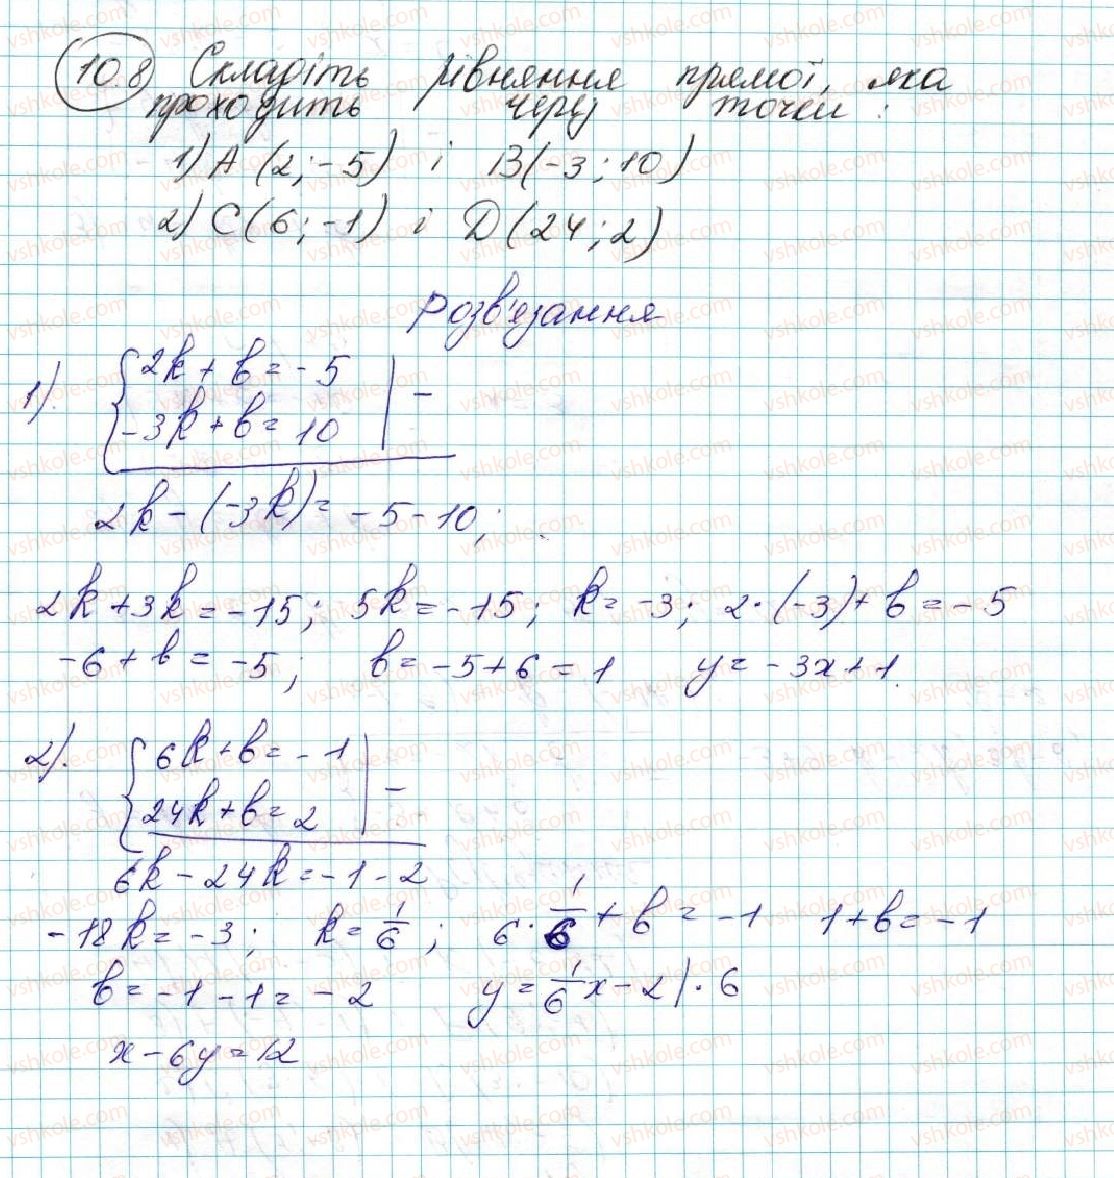 10.8 Складіть рівняння прямої, яка
проходить через точки:
1) A (2; -5) і B(-3; 10)
2) C(6; -1) і D(24; 2)
Розв'язання
1). {2k + b = -5 | -
-3k + b = 10
2k - (-3k) = -5 - 10;
2k + 3k = -15; 5k = -15; k = -3; 2·(-3) + b = -5
-6 + b = -5; b = -5 + 6 = 1 y = -3x + 1.
2). {6k + b = -1 | -
24k + b = 2
6k - 24k = -1 - 2
-18k = -3; k = 1/6; 6 · 1/6 + b = -1 1 + b = -1
b = -1 - 1 = -2 y = 1/6 x - 2 | · 6
x - 6y = 12